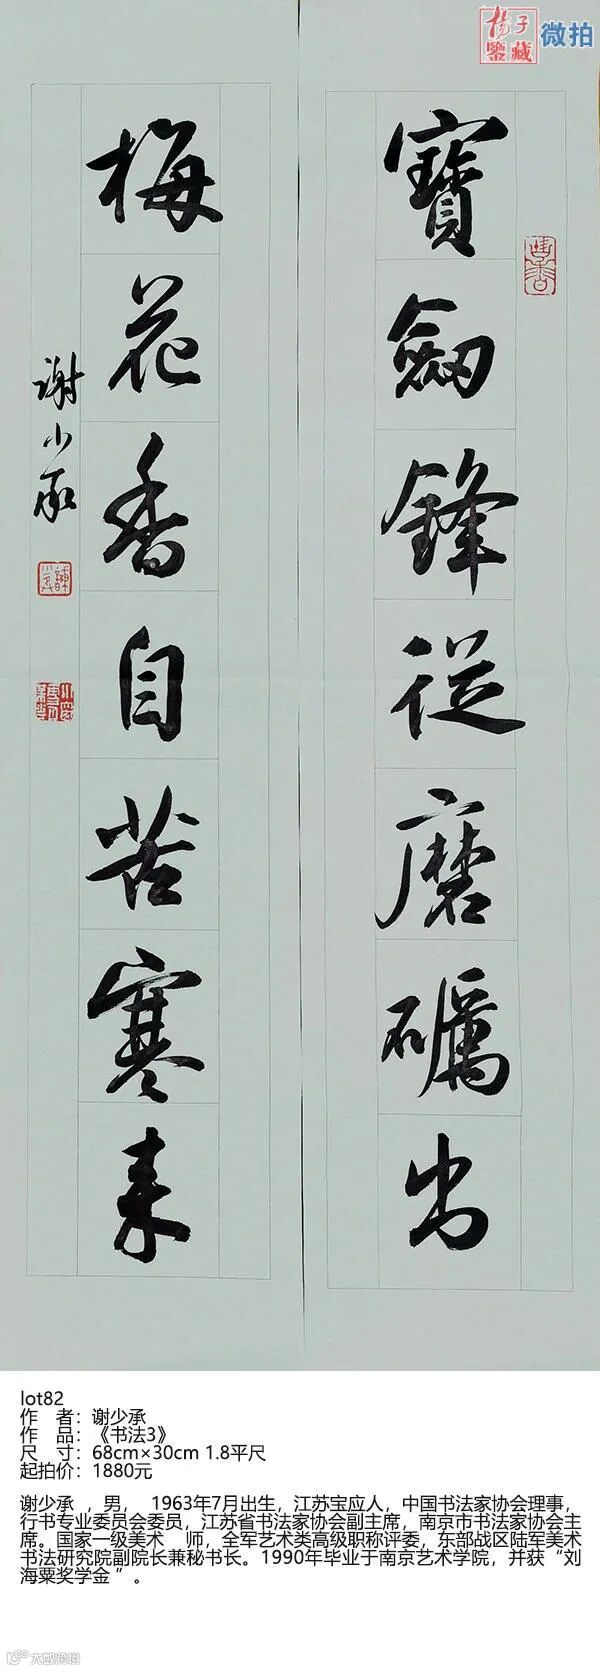 揚子
鑒藏
微拍
寶劒鋒從磨礪出
梅花香自苦寒来
谢少承
lot82
作 者：谢少承
作 品：《书法3》
尺 寸：68cm×30cm 1.8平尺
起拍价：1880元
谢少承 ，男， 1963年7月出生，江苏宝应人，中国书法家协会理事，
行书专业委员会委员，江苏省书法家协会副主席，南京市书法家协会主
席。国家一级美术 师，全军艺术类高级职称评委，东部战区陆军美术
书法研究院副院长兼秘书长。1990年毕业于南京艺术学院，并获“刘
海粟奖学金 ”。